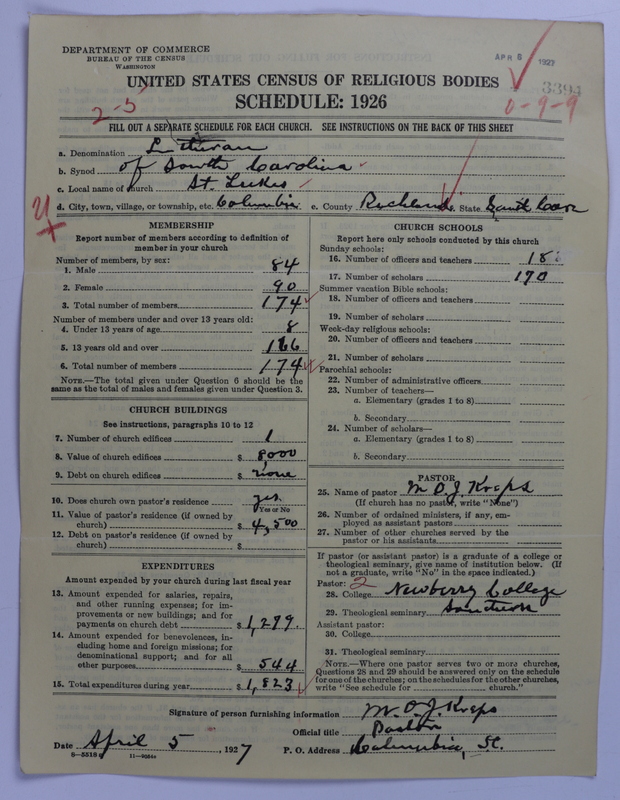 DEPARTMENT OF COMMERCE
BUREAU OF THE CENSUS
WASHINGTON
APR 6 1927
3394
UNITED STATES CENSUS OF RELIGIOUS BODIES
SCHEDULE: 1926
2-5
0-9-9
FILL OUT A SEPARATE SCHEDULE FOR EACH CHURCH. SEE INSTRUCTIONS ON THE BACK OF THIS SHEET
a. Denomination Lutheran
b. Synod of South Carolina
c. Local name of church St. Lukes
d. City, town, village, or township, etc. Columbia e. County Richland f. State South Caro
MEMBERSHIP
Report number of members according to definition of member in your church
Number of members, by sex:
1. Male 84
2. Female 90
3. Total number of members 174
Number of members under and over 13 years old:
4. Under 13 years of age 8
5. 13 years old and over 166
6. Total number of members 174
NOTE.—The total given under Question 6 should be the same as the total of males and females given under Question 3.
CHURCH BUILDINGS
See instructions, paragraphs 10 to 12
7. Number of church edifices 1
8. Value of church edifices $ 8,000
9. Debt on church edifices $ none
10. Does church own pastor's residence yes
Yes or No
11. Value of pastor's residence (if owned by church) $ 4,500
12. Debt on pastor's residence (if owned by church) $
EXPENDITURES
Amount expended by your church during last fiscal year
13. Amount expended for salaries, repairs, and other running expenses; for improvements or new buildings; and for payments on church debt $ 1,279.
14. Amount expended for benevolences, including home and foreign missions; for denominational support; and for all other purposes $ 544
15. Total expenditures during year $ 1,823
CHURCH SCHOOLS
Report here only schools conducted by this church
Sunday schools:
16. Number of officers and teachers 18
17. Number of scholars 170
Summer vacation Bible schools:
18. Number of officers and teachers
19. Number of scholars
Week-day religious schools:
20. Number of officers and teachers
21. Number of scholars
Parochial schools:
22. Number of administrative officers
23. Number of teachers—
a. Elementary (grades 1 to 8)
b. Secondary
24. Number of scholars—
a. Elementary (grades 1 to 8)
b. Secondary
PASTOR
25. Name of pastor M O J Kreps
(If church has no pastor, write "None")
26. Number of ordained ministers, if any, employed as assistant pastors
27. Number of other churches served by the pastor or his assistants
If pastor (or assistant pastor) is a graduate of a college or theological seminary, give name of institution below. (If not a graduate, write "No" in the space indicated.)
Pastor: 2
28. College Newberry College
29. Theological seminary Southern
Assistant pastor:
30. College
31. Theological seminary
NOTE.—Where one pastor serves two or more churches, Questions 28 and 29 should be answered only on the schedule for one of the churches; on the schedules for the other churches, write "See schedule for church."
Signature of person furnishing information M. O. J. Kreps
Official title Pastor
Date April 5, 1927 P. O. Address Columbia, S.C.
8-5518